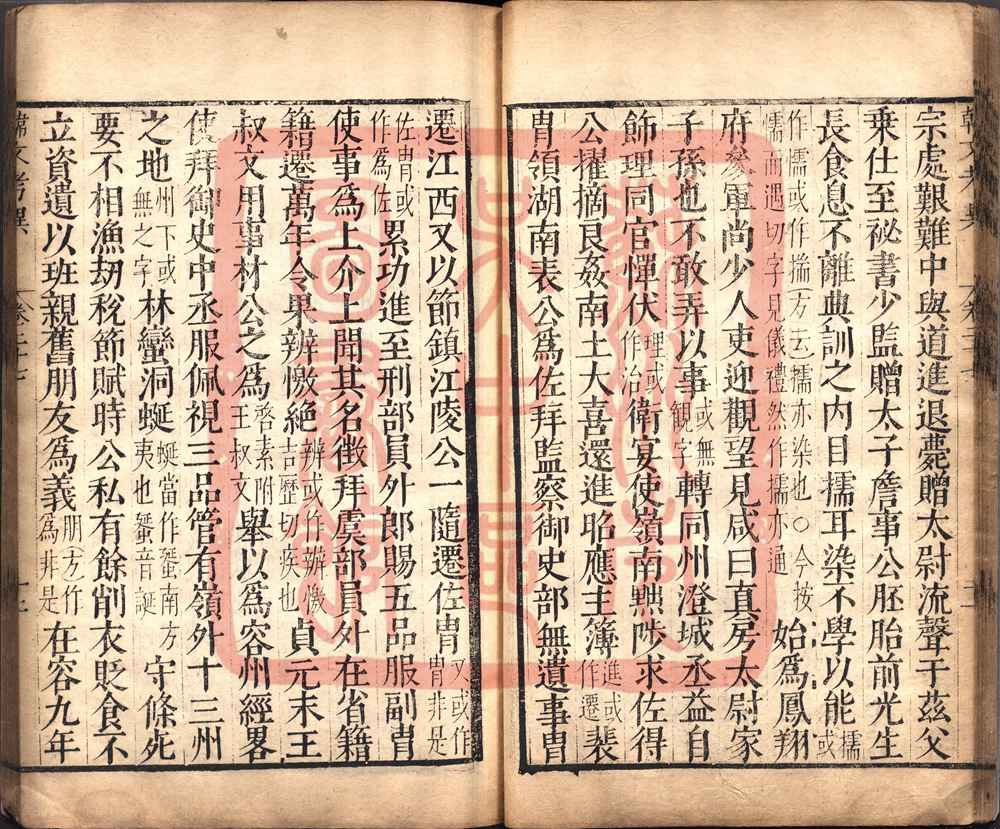 宗處艱難中與道進退薨贈太尉流聲于茲父
乘仕至祕書少監贈太子詹事公胚胎前光生
長食息不離典訓之內目擩耳染不學以能擩或
作濡或作揣方云擩亦染也○今按
儒而遇切字見儀禮然作擩亦通始爲鳳翔
府參軍尚少人吏迎觀望見咸曰真房太尉家
子孫也不敢弄以事或無觀字轉同州澄城丞益自
飾理同官憚伏理或作治衛宴使嶺南黜陟求佐得
公擢摘良姦南土大喜還進昭應主簿進或作遷裴
冑領湖南表公爲佐拜監察御史部無遺事冑
遷江西又以節鎮江陵公一隨遷佐冑又或作冑非是
佐冑或作爲佐累功進至刑部員外郎賜五品服副冑
使事爲上介上聞其名徵拜虞部員外在省籍
籍遷萬年令果辨憿絕辨或作辦憿吉歷切疾也貞元末王
叔文用事材公之爲啓素附王叔文舉以爲容州經畧
使拜御史中丞服佩視三品管有嶺外十三州
之地州下或無之字林蠻洞蜒蜒當作蜑南方夷也蜑音誕守條死
要不相漁劫稅節賦時公私有餘削衣貶食不
立資遺以班親舊朋友爲義朋友方作爲非是在容九年
韓文考異
卷二十七